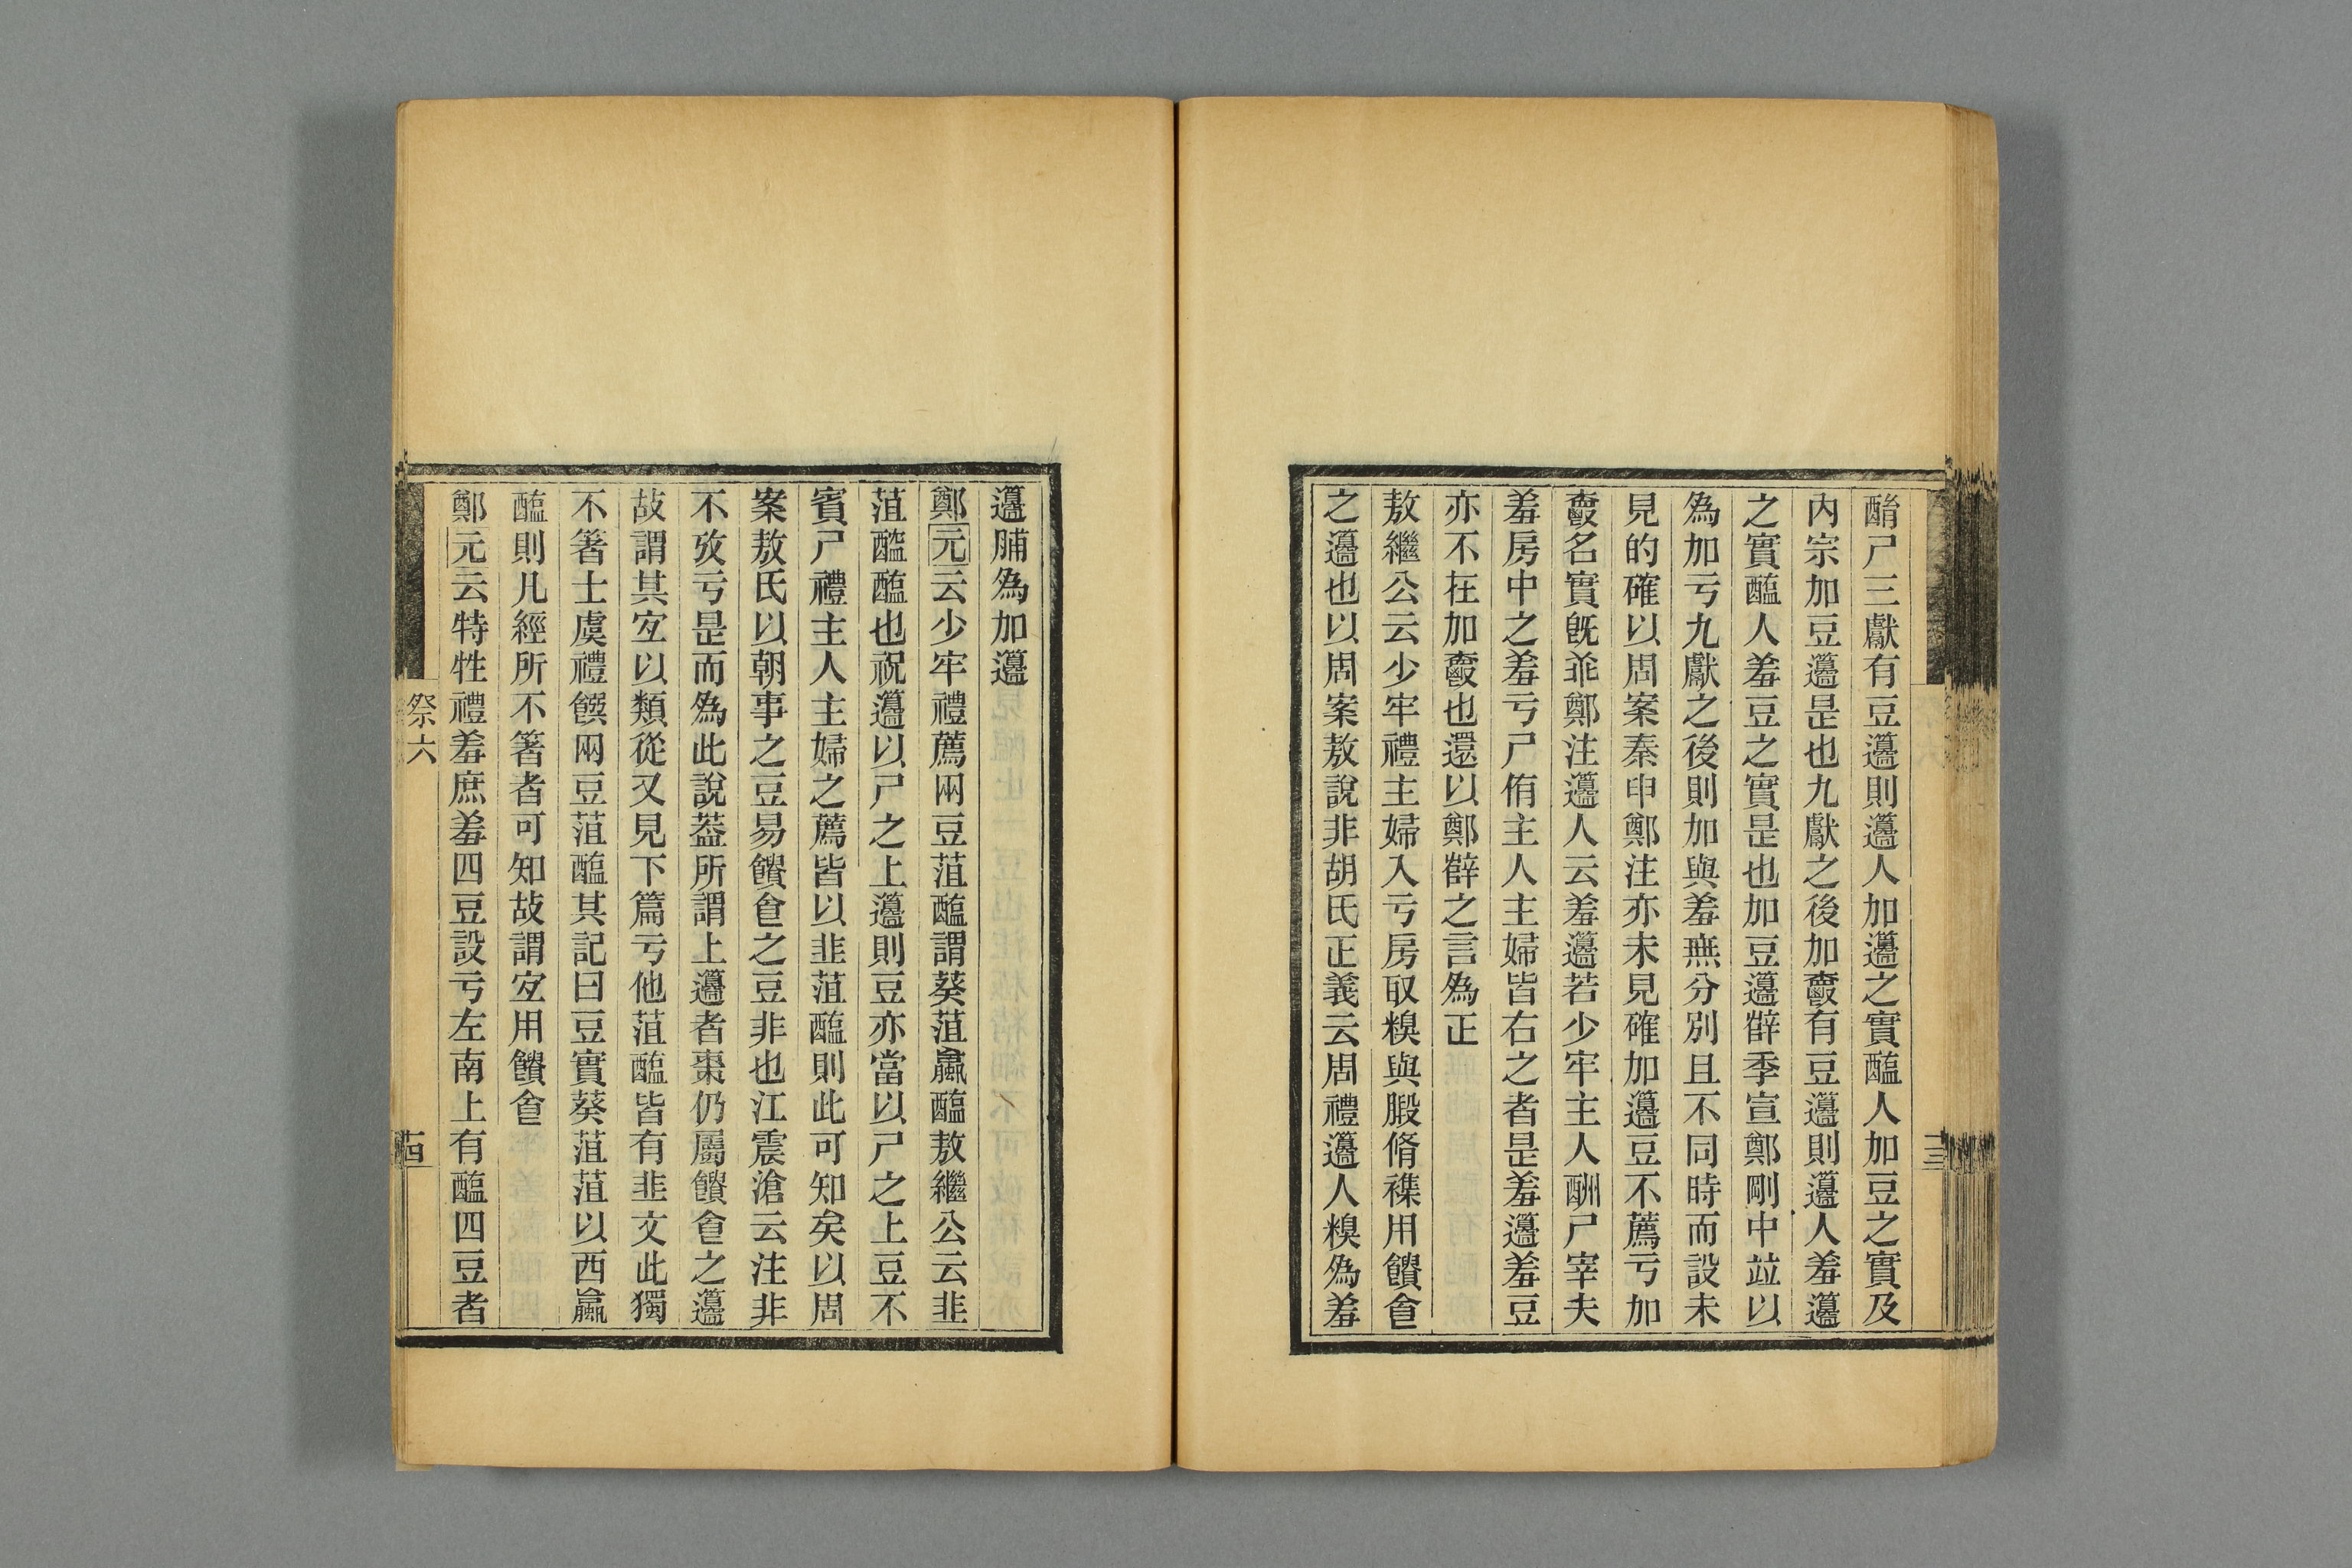 酳尸三獻有豆籩則籩人加籩之實醢人加豆之實及
内宗加豆籩是也九獻之後加爵有豆籩則籩人羞籩
之實醢人羞豆之實是也加豆籩辥季宣鄭剛中竝以
為加亏九獻之後則加與羞無分別且不同時而設未
見的確以周案秦申鄭注亦未見確加籩豆不薦亏加
爵名實旣乖鄭注籩人云羞籩若少牢主人酬尸宰夫
羞房中之羞亏尸侑主人主婦皆右之者是羞籩羞豆
亦不在加爵也還以鄭辥之言為正
敖繼公云少牢禮主婦入亏房取糗與腶脩襍用饋食
之籩也以周案敖說非胡氏正義云周禮籩人糗為羞
籩脯為加籩
鄭元云少牢禮薦兩豆菹醢謂葵菹蠃醢敖繼公云韭
菹醓醢也祝籩以尸之上籩則豆亦當以尸之上豆不
賓尸禮主人主婦之薦皆以韭菹醢則此可知矣以周
案敖氏以朝事之豆易饋食之豆非也江震滄云注非
不攷亏是而為此說葢所謂上籩者棗仍屬饋食之籩
故謂其宐以類從又見下篇亏他菹醢皆有韭文此獨
不箸士虞禮饌兩豆菹醢其記曰豆實葵菹菹以西蠃
醢則凡經所不箸者可知故謂宐用饋食
鄭元云特牲禮羞庶羞四豆設亏左南上有醢四豆者
祭六